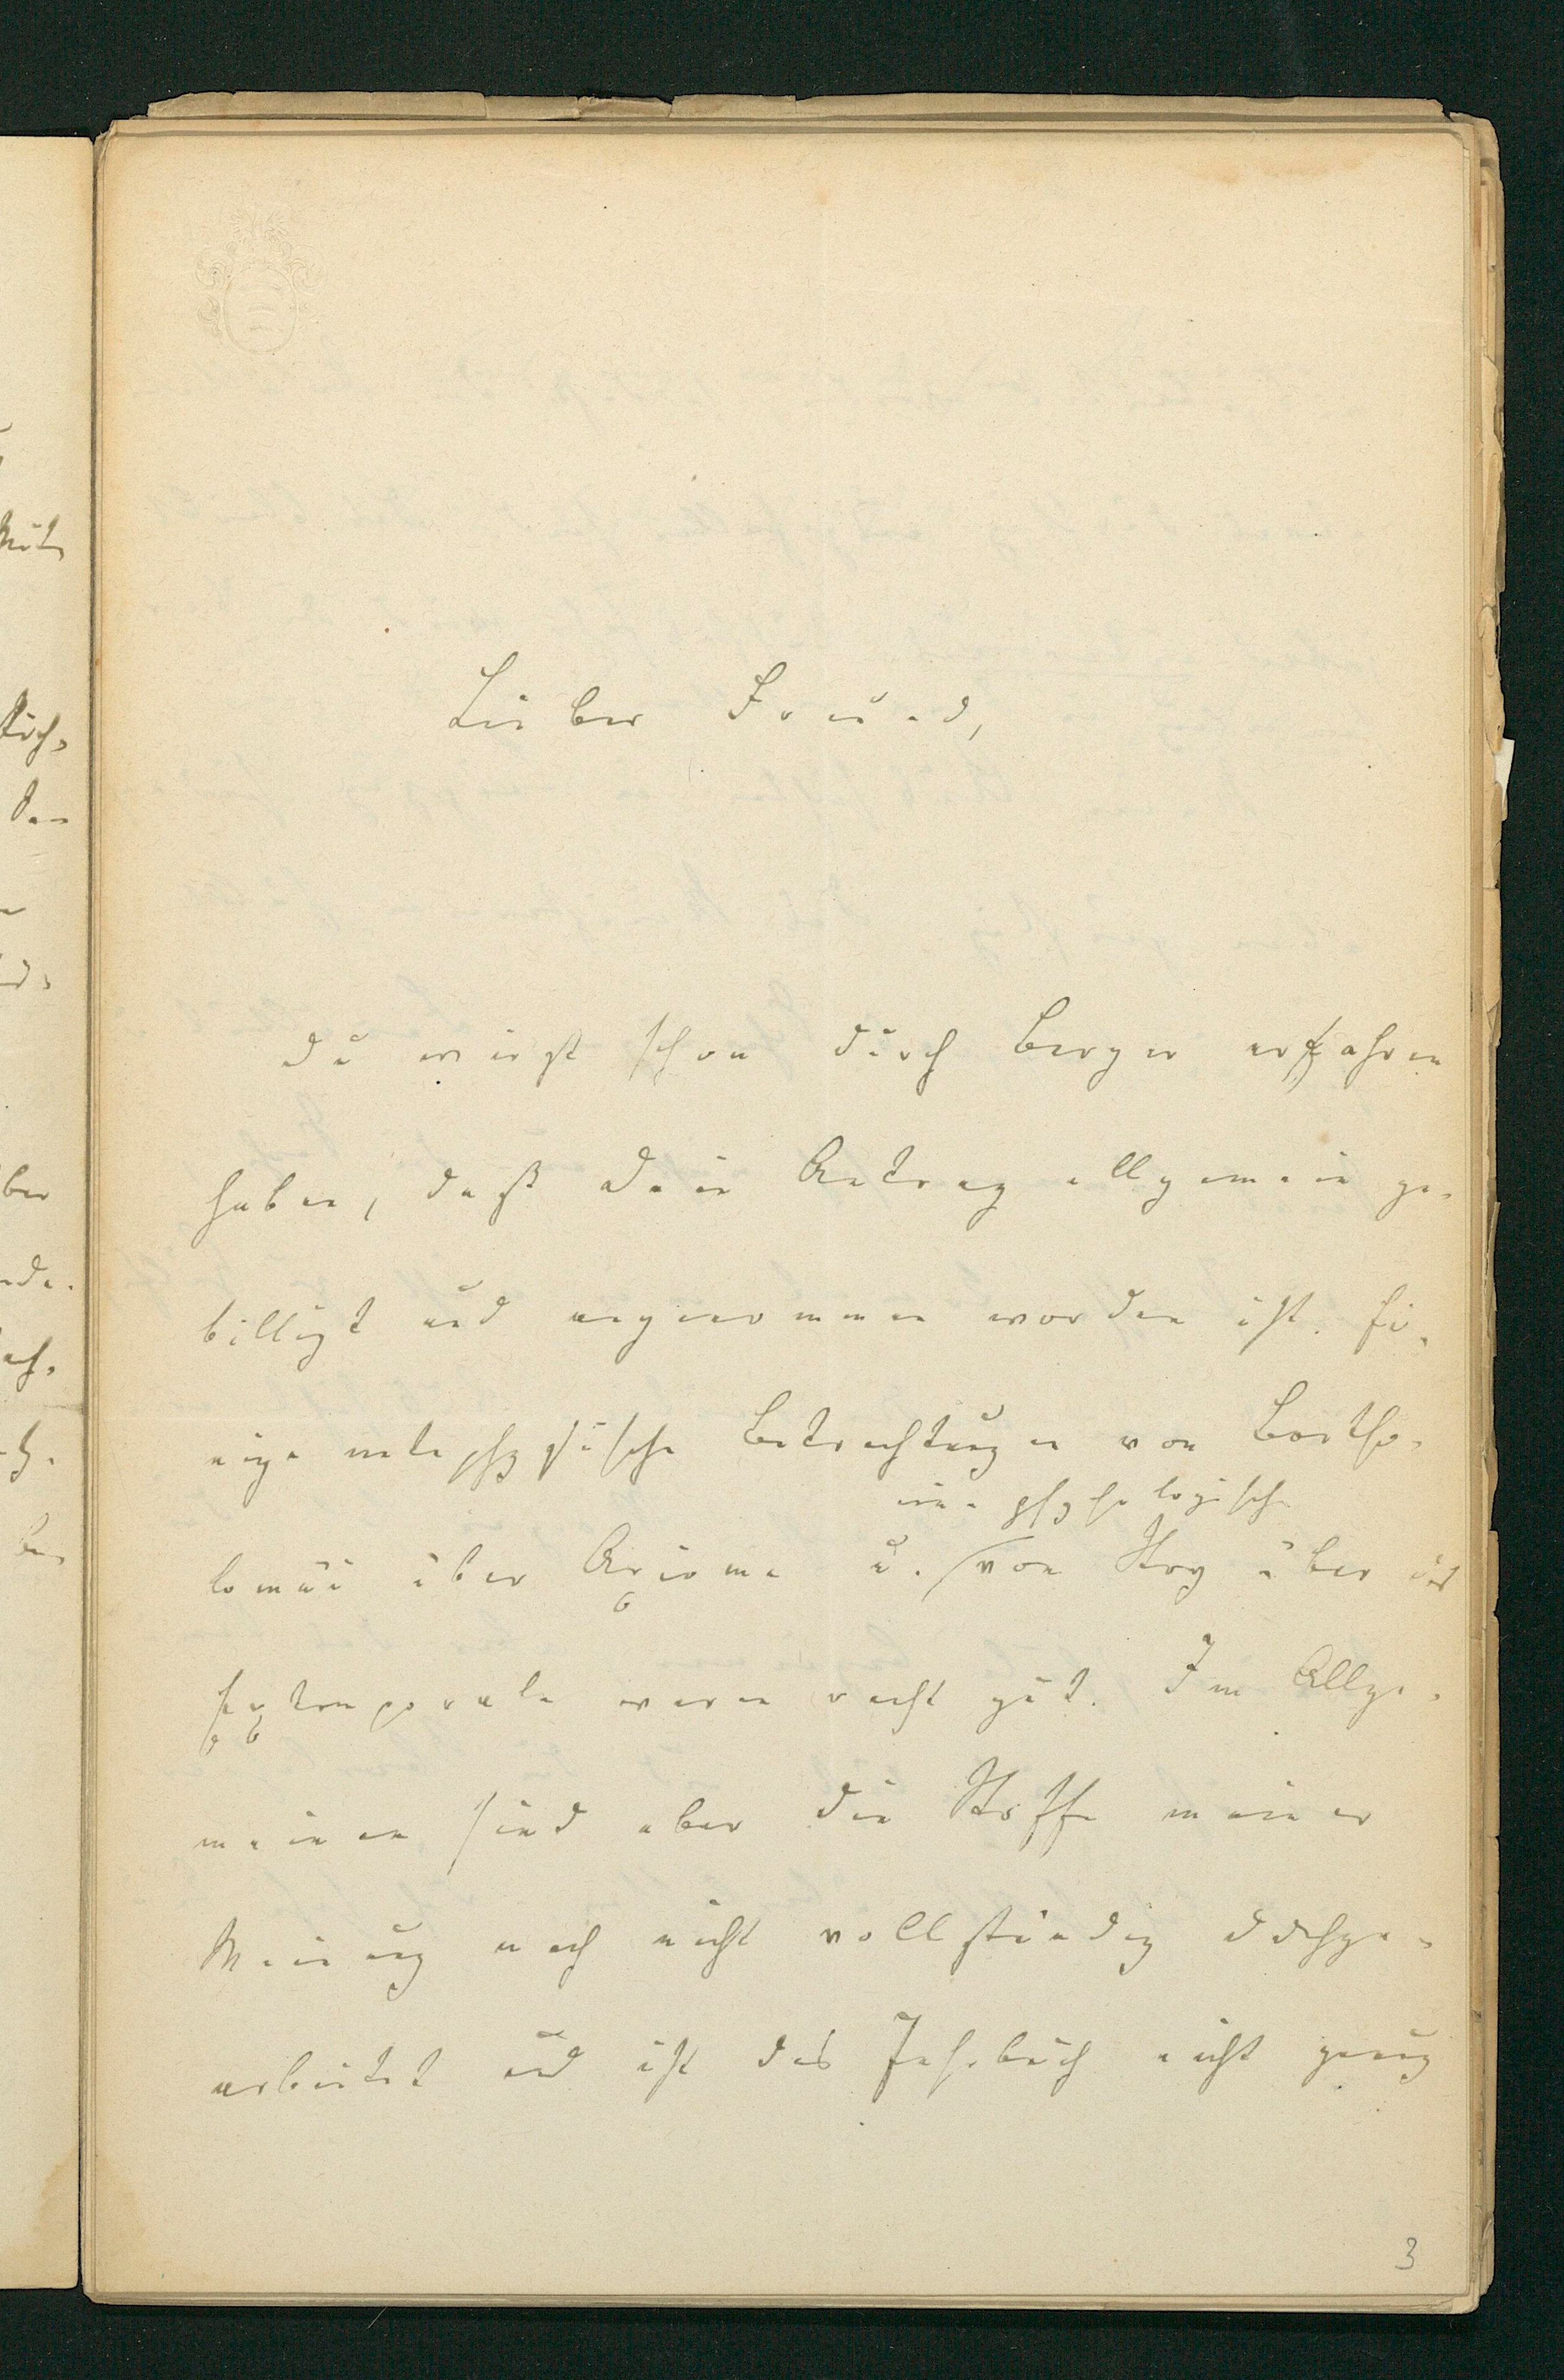 Lieber Freund,
Du wirst schon durch Berger erfahren
haben, daß Dein Antrag allgemein ge-
billigt und angenommen worden ist. Ei-
nige metaphysische Betrachtungen von Bartho-
eine physologische
lomäi über Axiome u. von Stoy über das
Extemporale waren recht gut. Im Allge-
meinen sind aber die Stoffe meiner
Meinung nach nicht vollständig durchge-
arbeitet und ist das Jahrbuch nicht genug
3